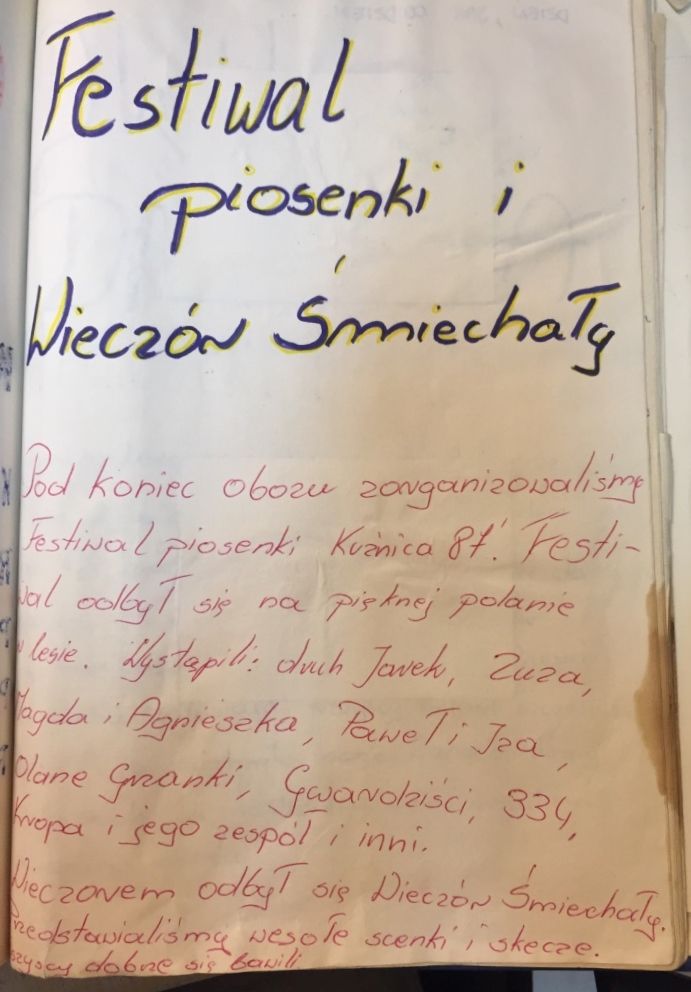 Festiwal
piosenki i
Wieczór Śmiechały
Pod koniec obozu zorganizowaliśmy
Festiwal piosenki Kuźnica 87'. Festi-
wal odbył się na pięknej polanie
w lesie. Wystąpili: druh Jarek, Zuza,
Magda i Agnieszka, Paweł i Iza,
Olane Grzanki, Gwardziści, 334,
Kropa i jego zespół i inni.
Wieczorem odbył się Wieczór Śmiechały.
Przedstawialiśmy wesołe scenki i skecze.
Wszyscy dobrze się bawili.